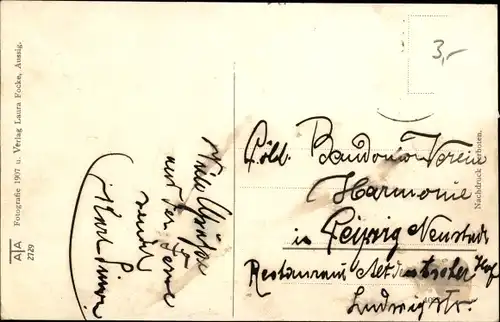 Fotografie 1907 u. Verlag Laura Focke, Aussig.
2729
Viele Grüße
aus der Ferne
sendet
3,-
Löbl. Bandonion Verein
Harmonie
in Leipzig Neustadt
Restaurant Altdeutscher Hof
Ludwigstr.
Nachdruck verboten.